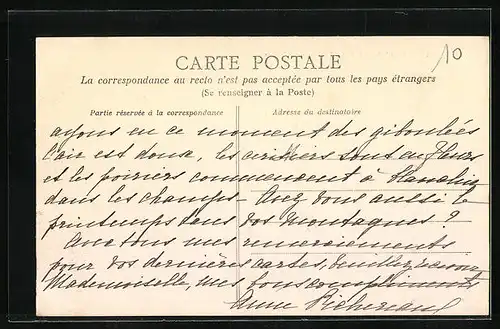 10
CARTE POSTALE
La correspondance au recto n'est pas acceptée par tous les pays étrangers
(Se renseigner à la Poste)
Partie réservée à la correspondance
Adresse du destinataire
ayons en ce moment des giboulées
l'air est doux, les cerisiers sont en fleurs
et les poiriers commencent à
dans les champs - Avez vous aussi le
printemps dans vos montagnes ?
Avec tous mes remerciements
pour vos dernières cartes, veuillez recevoir
Mademoiselle, mes bons compliments
Anne